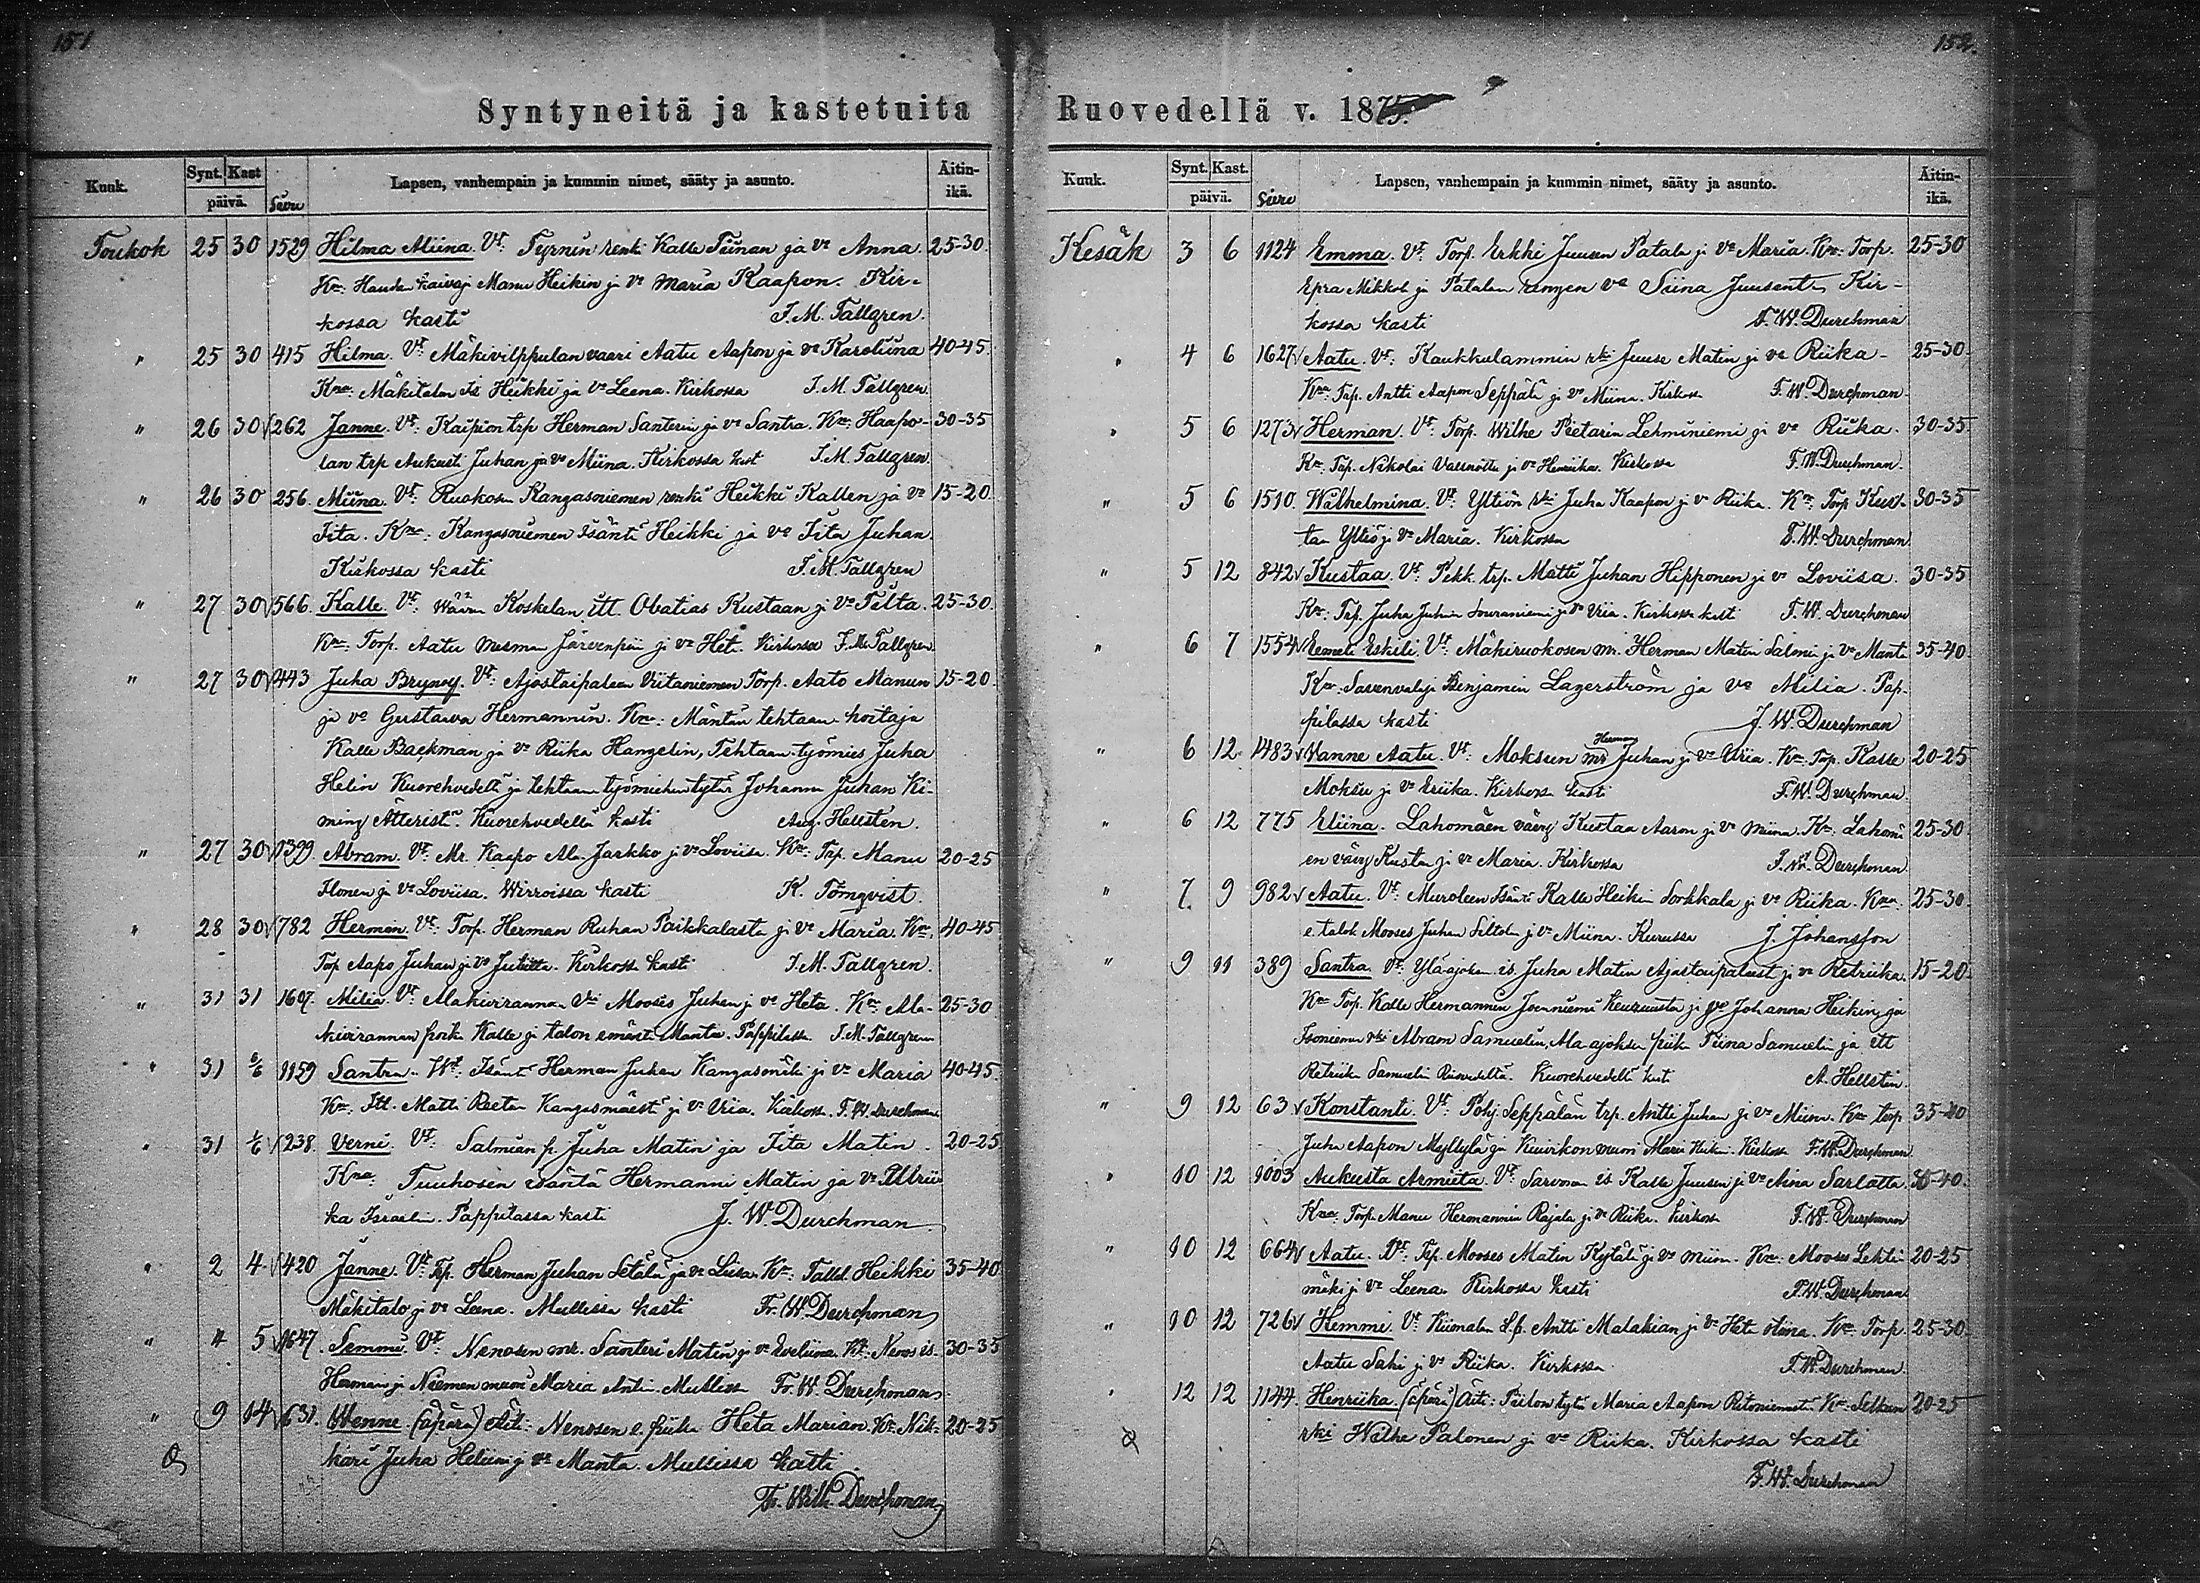 151
Syntyneitä ja kastetuita
Kuuk. Synt. Kast päivä. Sivu Lapsen, vanhempain ja kummin nimet, sääty ja asunto. Äitin-ikä.
Toukok 25 30 1529 Hilma Miina. Vt: Tyrnin renki Kalle Tiinan ja vo Anna. 25-30.
Kmr: Haudan kaivaja Manu Heikin ja vo Maria Kaapon. Kir-
kossa kasti J. M. Tallgren.
" 25 30 415 Hilma. Vt: Mäkivilppulan vaari Aatu Aapon ja vo Karoliina 40-45.
Kmr: Mäkitalon is Heikki ja vo Leena. Kirkossa J. M. Tallgren.
" 26 30 262 Janne. Vt: Kaipion trp Herman Santerin ja vo Santra. Kmr: Haapo- 30-35
lan trp Aukusti Juhan ja vo Miina. Kirkossa kast J. M. Tallgren.
" 26 30 256. Miina. Vt: Ruokosen Kangasniemen renki Heikki Kallen ja vo 15-20.
Iita. Kmr: Kangasniemen Isäntä Heikki ja vo Iita Juhan
Kirkossa kasti J. M. Tallgren
" 27 30 566. Kalle. Vt: Koskelan itt. Obatias Kustaan ja vo Tilta. 25-30.
Kmr: Torp. Aatu Järvenpää ja vo Het. Kirkossa J. M. Tallgren.
" 27 30 443 Juha Brynolf. Vt: Ajostaipaleen Viitaniemen Torp. Aato Manun 15-20.
ja vo Gustaava Hermannin. Kmr: Mäntän tehtaan hoitaja
Kalle Backman ja vo Riika Hangelin, Tehtaan työmies Juha
Helin Kuorehvedeltä ja tehtaan työmiehen tytär Johanna Juhan Ki-
ming Ätteristä. Kuorehvedellä kasti Aug. Hellstén.
" 27 30 1399. Abram. Vt: Mr. Kaapo Ala-Jarkko ja vo Loviisa. Kmr: Trp. Manu 20-25
Ilonen ja vo Loviisa. Wirroissa kasti K. Törnqvist.
" 28 30 782 Herman. Vt: Torp. Herman Ruhan Paikkalasta ja vo Maria. Kmr: 40-45
Torp Aapo Juhan ja vo Julitta. Kirkossa kasti J. M. Tallgren.
" 31 31 1607. Milia. Vt: Alakivirannan rki Mooses Juhan j vo Heta. Kmr: Ala- 25-30
kivirannan poika Kalle ja talon emäntä Manta. Pappilassa J. M. Tallgren
" 31 6/6 1159 Santra. Vt: Isäntä Herman Juhan Kangasmäki ja vo Maria 40-45.
Kmr: Itt. Matti Reetan Kangasmäestä ja vo Viia. Kirkossa. F. W. Durchman
" 31 1/6 238. Verni. Vt: Salmian p. Juha Matin ja Iita Matin 20-25
Kmr: Tuuhosen isäntä Hermanni Matin ja vo Ulrii-
ka Israelin. Pappilassa kasti J. W. Durchman
" 2 4 420 Janne. Vt: Trp. Herman Juhan Setälä ja vo Liisa. Kmr: Tallol. Heikki 35-40
Mäkitalo ja vo Leena. Mullissa kasti Fr. W. Durchman
" 4 5 1647. Semmi. Vt: Nenosen mr. Santeri Matin ja vo Eveliina. Kmr: Nenos is. 30-35
Herman ja Niemen muori Maria Antin. Mullissa Fr. W. Durchman
" 9 14 631. Wenne (äpärä) Äiti: Nenosen e. piika Heta Marian. Kmr: Nik- 20-25
kari Juha Helin ja vo Manta. Mullissa kasti
Fr. Wilh Durchman
152.
Ruovedellä v. 1875.
Kuuk. Synt. Kast. päivä. Sivu Lapsen, vanhempain ja kummin nimet, sääty ja asunto. Äitin-ikä.
Kesäk 3 6 1124 Emma. Vt: Torp. Erkki Juusen Patala ja vo Maria. Kmr: Torp. 25-30
Epra Mikkol ja Patalan rengen vo Siina Juusent. Kir-
kossa kasti F. W. Durchman
" 4 6 1627 Aatu. Vt: Kaukkulammin rki Juuse Matin ja vo Riika 25-30.
Kmr: Trp. Antti Aapon Seppälä ja vo Miina. Kirkossa F. W. Durchman.
" 5 6 1273 Herman. Vt: Torp. Wilhe Pietarin Lehminiemi ja vo Riika. 30-35
Kmr: Trp. Nikolai ja vo Henriika. Kirkossa F. W. Durchman.
" 5 6 1510. Wilhelmina. Vt: Yltiön rki Juha Kaapon ja vo Riika. Kmr: Torp Kus- 30-35
taa Yltiö ja vo Maria. Kirkossa F. W. Durchman.
" 5 12 842 Kustaa. Vt: Pekk. trp. Matti Juhan Hipponen ja vo Loviisa. 30-35
Kmr: Trp. Juha Juhan Souraniemi ja vo Viia. Kirkossa kasti F. W. Durchman
" 6 7 1554 Eemeli Eskili. Vt: Mäkiruokosen mr. Herman Matin Salmin ja vo Manta 35-40
Kmr: Sarenvalija Benjamin Lagerström ja vo Milia. Pap-
pilassa kasti J. W. Durchman
" 6 12 1483 Wanne Aatu. Vt: Moksun mr Herman Juhan ja vo Viia. Kmr: Trp. Kalle 20-25
Moksu ja vo Eriika. Kirkossa kasti F. W. Durchman.
" 6 12 775 Eliina. Lahomäen vävy Kustaa Aaron ja vo Miina. Kmr: Lahomä 25-30
en vävy Kustaa ja vo Maria. Kirkossa F. W. Durchman
" 7. 9 982 Aatu. Vt: Muroleen Isäntä Kalle Heikin Sorkkala ja vo Riika. Kmr: 25-30.
e. talok Mooses Juhan Siltolan ja vo Miina. Kurussa J. Johansson
" 9 11 389 Santra. Vt: Yläajoksen is. Juha Matin Ajostaipaleest ja vo Retriika. 15-20
Kmr: Torp. Kalle Hermannin Joenniemi Keuruusta ja vo Johanna Heikin, ja
Isoniemen rki Abram Samuelin, Ala-ajoksen piika Tiina Samuelin ja itt
Retriika Samuelin Ruovedeltä. Kuorehvedellä kasti A. Hellstén.
" 9 12 63 Konstanti. Vt: Pohj Seppälän trp. Antti Juhan ja vo Miina. Kmr torp 35-40
Juha Aapon Myllylä ja Kuivikon muori Maria Heikin. Kirkossa F. W. Durchman.
" 10 12 1003 Aukusta Armiita. Vt: Sarvonan is Kalle Juusen ja vo Aina Sarlotta. 35-40.
Kmr: Torp. Manu Hermannin Rajala ja vo Riika. Kirkossa F. W. Durchman
" 10 12 664 Aatu. Vt: Trp. Mooses Matin Kytälä ja vo Miina. Kmr: Mooses Lehti- 20-25
mäki ja vo Leena. Kirkossa kasti F. W. Durchman
" 10 12 726 Hemmi. Vt: Kiimalan Antti Malakian ja vo Heta Stiina. Kmr: Torp. 25-30.
Aatu Sahi ja vo Riika. Kirkossa F. W. Durchman.
" 12 12 1144. Henriika (äpärä) Äiti: Piilon tytär Maria Aapon Ritoniemestä. Kmr: Selkeen 20-25
rki Wilhe Palonen ja vo Riika. Kirkossa kasti
F. W. Durchman